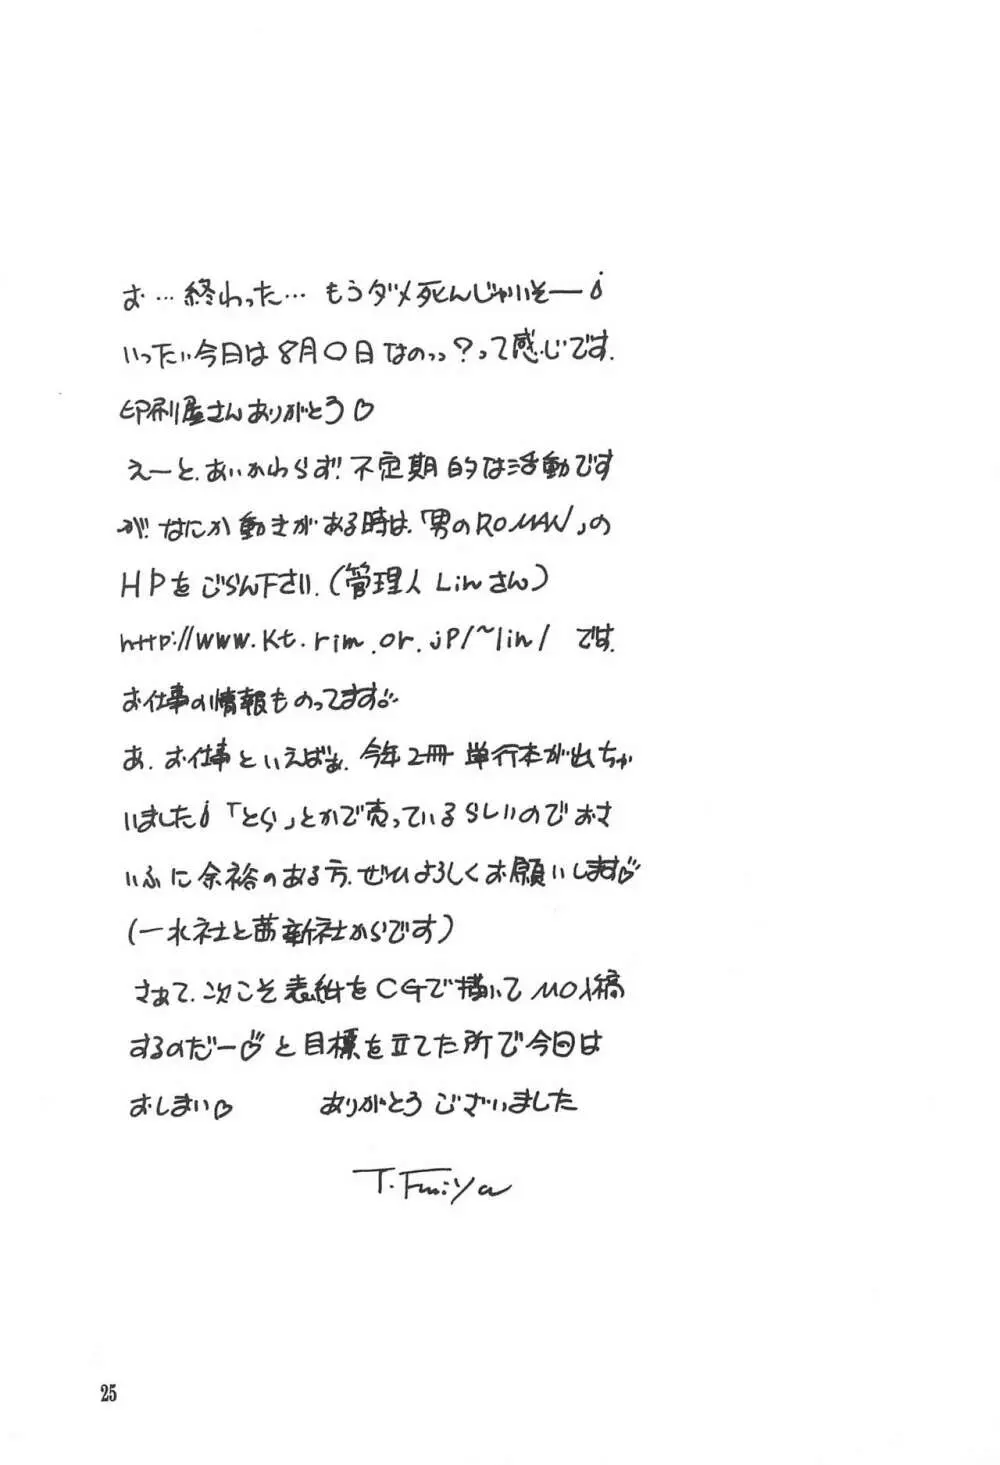 お…終わった… もうダメ死んじゃいそー!
いったい今日は8月〇日なのっ?って感じです.
印刷屋さんありがとう♡
えーと.あいかわらず.不定期的な活動です
が.なにか動きがある時は.「男のROMAN」の
HPをごらん下さい.(管理人Linさん)
http://www.kt.rim.or.jp/~lin/ です.
お仕事の情報ものってます♡
あ.お仕事といえばぁ.今年2冊 単行本が出ちゃ
いました!「とら」とかで売っているらしいのでおさ
いふに余裕のある方.ぜひよろしくお願いします♡
(一水社と茜新社からです)
さぁて.次こそ表紙をCGで描いてMO入稿
するのだー♡と目標を立てた所で今回は
おしまい♡ ありがとうございました
T.Fujiya
25